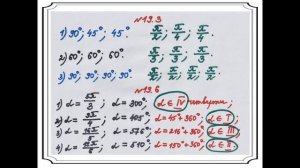 №19.3
1) 90°; 45°; 45°. π/2; π/4; π/4.
2) 60°; 60°; 60°. π/3; π/3; π/3.
3) 90°; 90°; 90°; 90°. π/2; π/2; π/2; π/2.
№19.6
1) α = 5π/3; α = 300°; α ∈ IV четверти;
2) α = 9π/4; α = 405°; α = 45° + 360°; α ∈ I;
3) α = 16π/5; α = 576°; α = 216° + 360°; α ∈ III
4) α = 510°; α = 150° + 360°; α ∈ II